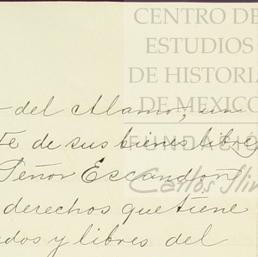 CENTRO DE
ESTUDIOS
DE HISTORIA
DE MEXICO
FUNDACIÓ
Carlos Slim
del Alamo, un
te de sus bienes libres
Señor Escandon
derechos que tiene
dos y libres del